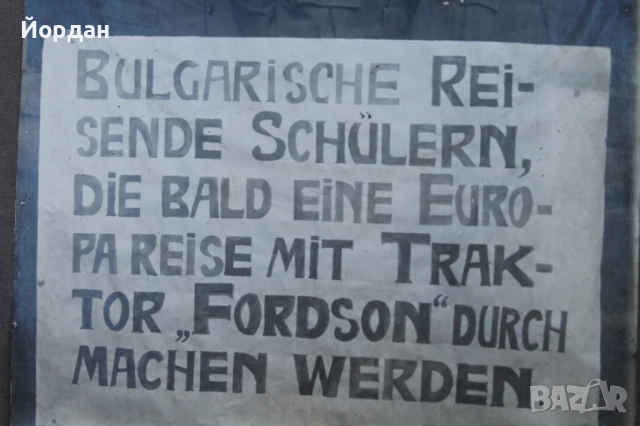 Йордан
BULGARISCHE REI-
SENDE SCHÜLERN,
DIE BALD EINE EURO-
PA REISE MIT TRAK-
TOR „FORDSON“ DURCH
MACHEN WERDEN.
BAZAR